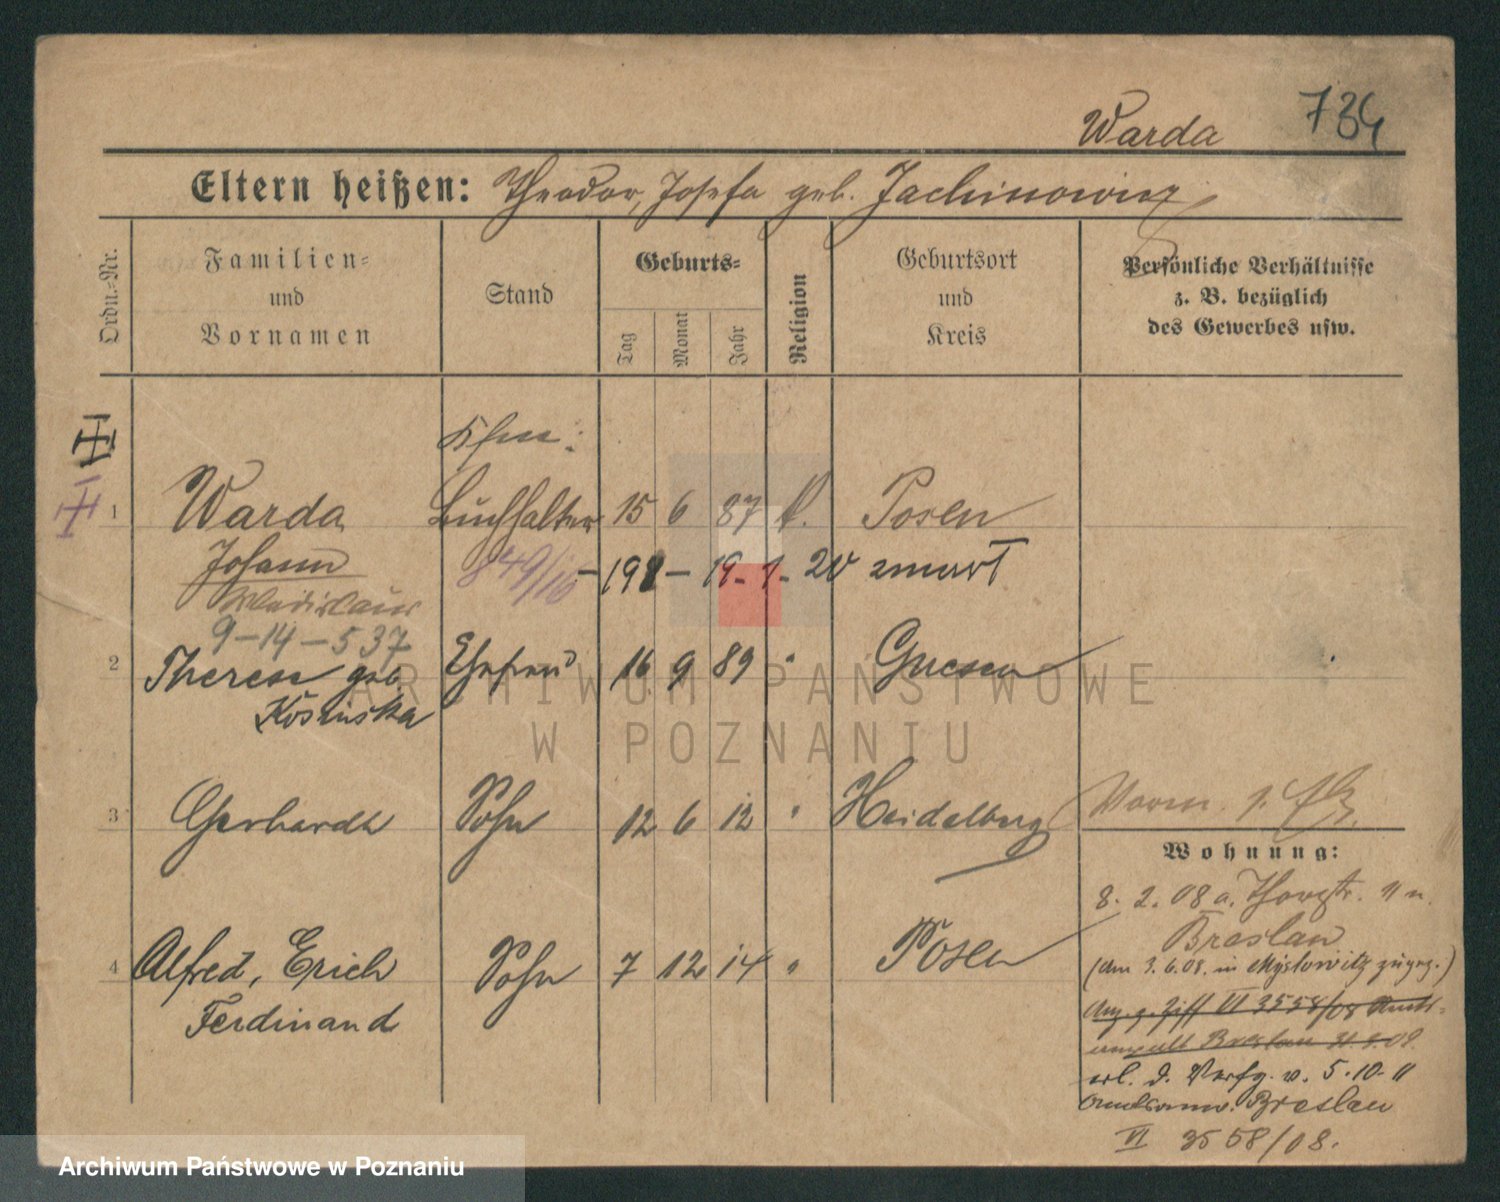 Warda 734
Eltern heißen: Theodor, Josefa geb. Jachinowicz
Ordn.-Nr.
Familien-
und
Vornamen
Stand
Geburts-
Tag
Monat
Jahr
Religion
Geburtsort
und
Kreis
Persönliche Verhältnisse
z. B. bezüglich
des Gewerbes usw.
1 Warda Buchhalter 15 6 87 k. Posen
Johann 849/16 - 198 - 19-1-20 zmarł
Wladislaus
9-14-537
2 Therese geb. Ehefrau 16 9 89 " Gnesen
Kosinska
3 Gerhardt Sohn 12 6 12 " Heidelberg
Wohnung:
8. 2. 08 a. Thorstr. 11 n.
Breslau
(Am 3. 6. 08. in Myslowitz zugez.)
4 Alfred, Erich Sohn 7 12 14 " Posen
Ferdinand
VI 3558/08 Amts-
anwalt Breslau
erl. d. Verfg. v. 5. 10. 11
Amtsanw. Breslau
VI 3558/08.
ARCHIWUM PAŃSTWOWE
W POZNANIU
Archiwum Państwowe w Poznaniu